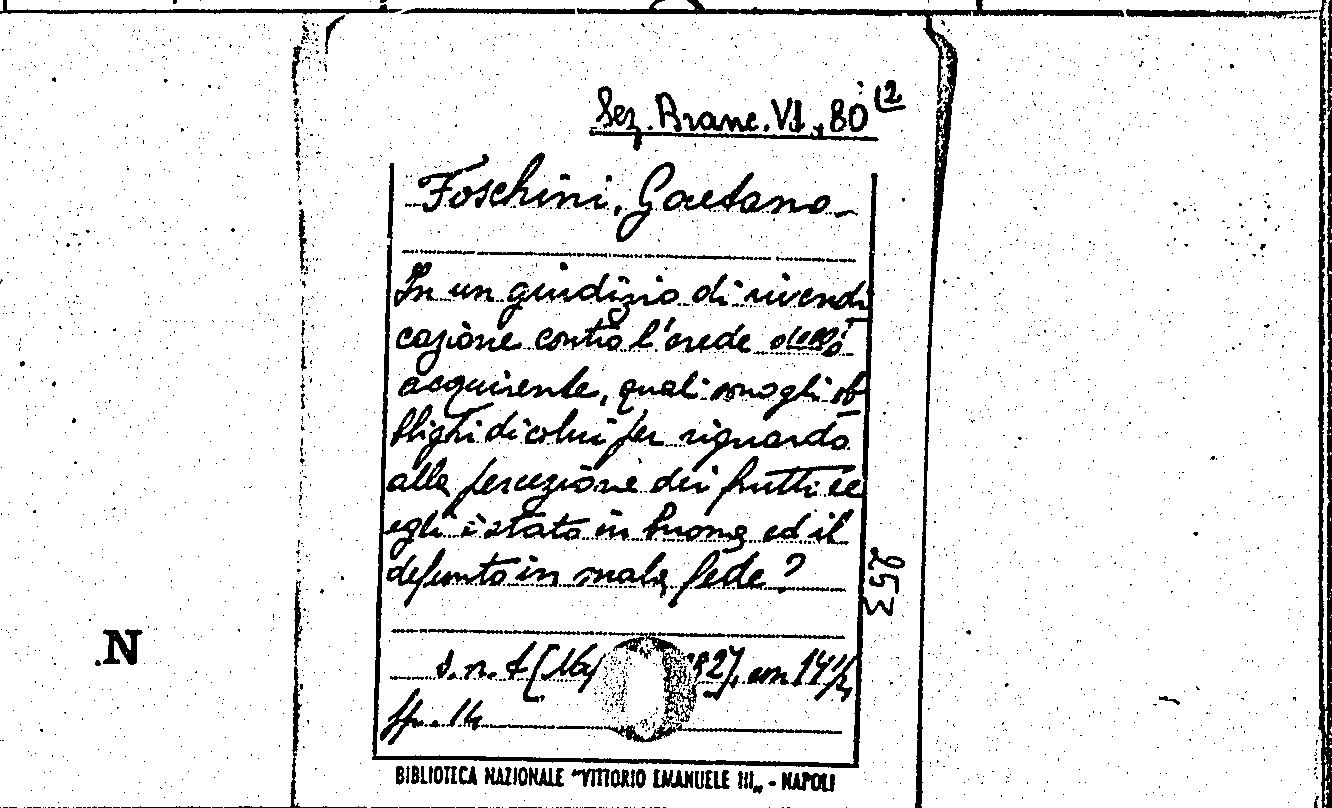 Sez. Branc. VI, 80 (2
Foschini, Gaetano
In un giudizio di rivendi
cazione contro l'erede dello
acquirente, quali sono gli ob
blighi di colui per riguardo
alla percezione dei frutti se
egli è stato in buona ed il
defunto in mala fede?
253
.N
s.n.t. [Na 82], cm 14
pp. 14
BIBLIOTECA NAZIONALE "VITTORIO EMANUELE III„ - NAPOLI